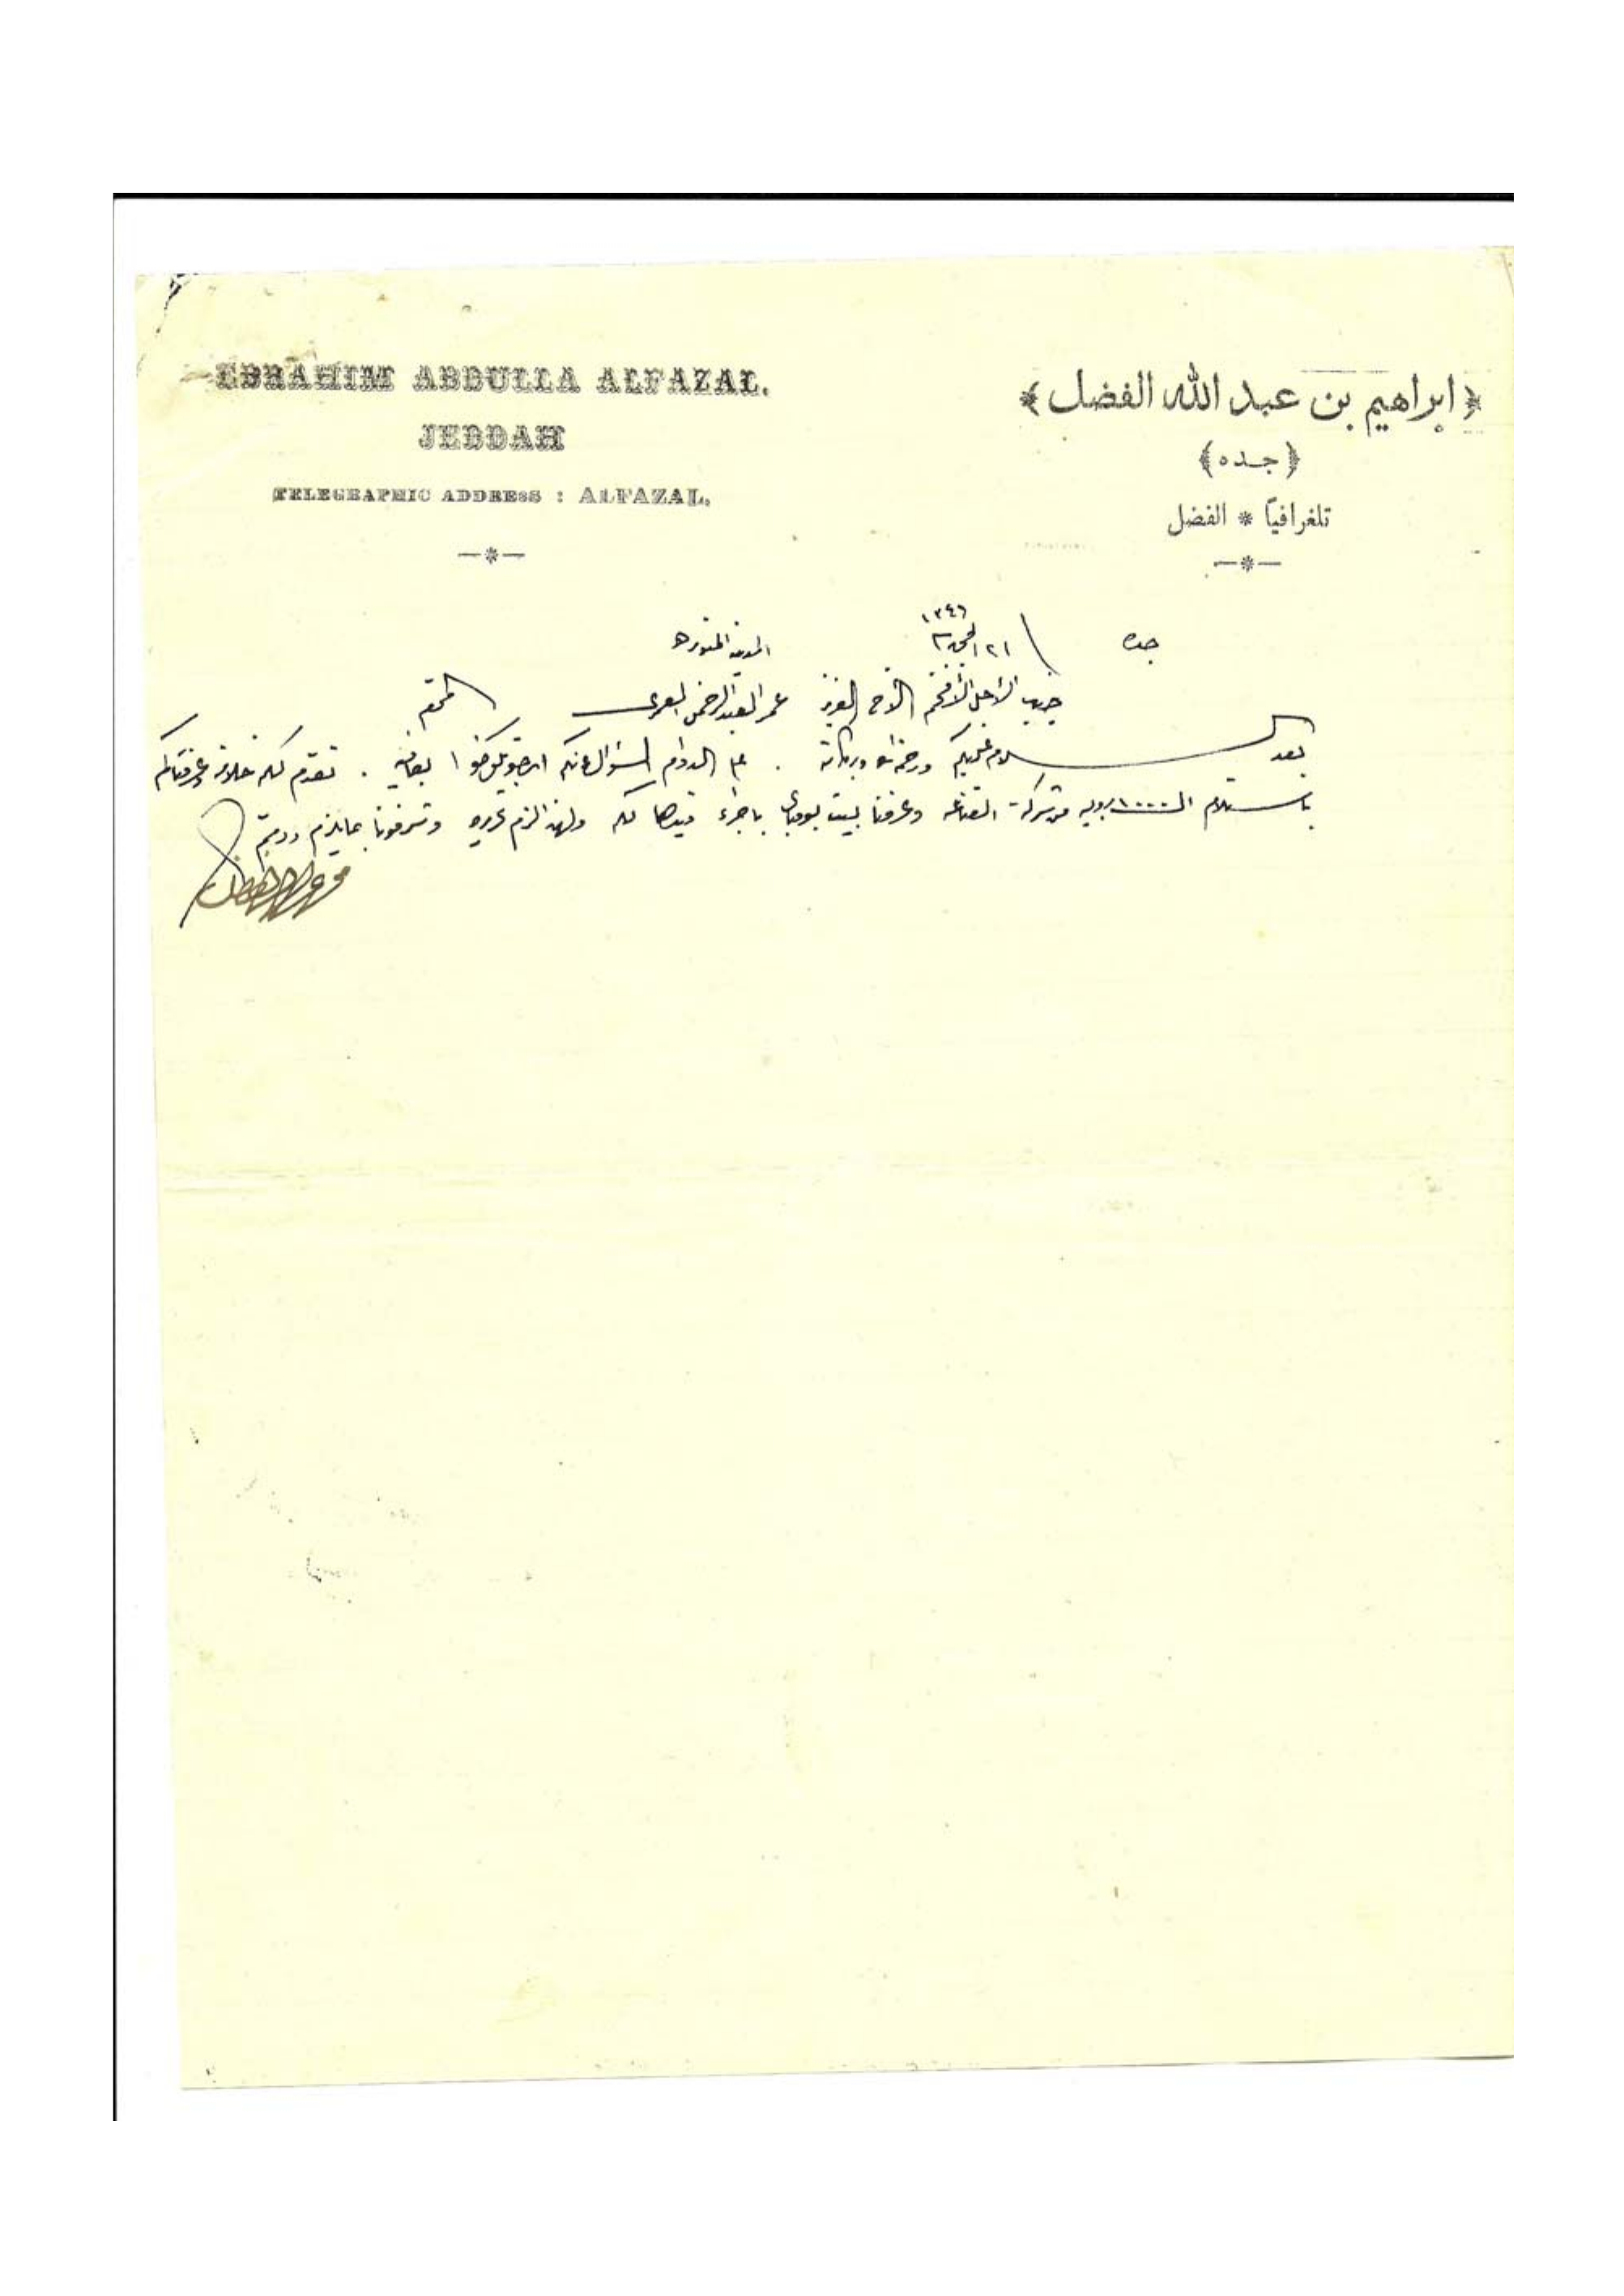 EBRAHIM ABDULLA ALFAZAL.
JEDDAH
TELEGRAPHIC ADDRESS : ALFAZAL.
﴿ ابراهيم بن عبد الله الفضل ﴾
﴿ جده ﴾
تلغرافياً * الفضل
جده ٢١ الحجة ١٣٤٦ المدينة المنوره
جناب الأجل الأفخم الأخ العزيز عمر العبدالرحمن العمرى المحترم
بعد السلام عليكم ورحمة الله وبركاته . على الدوام السؤال عنكم ارجو تكونوا بعافية . تقدم لكم خلافه عرفناكم
باستلام الـ ١٠٠٠٠ روبيه من شركة القناعه وعرفنا بيت بومباى باجراء قيدها لكم ولهذا لزم تحريره وشرفونا بما يلزم ودمتم